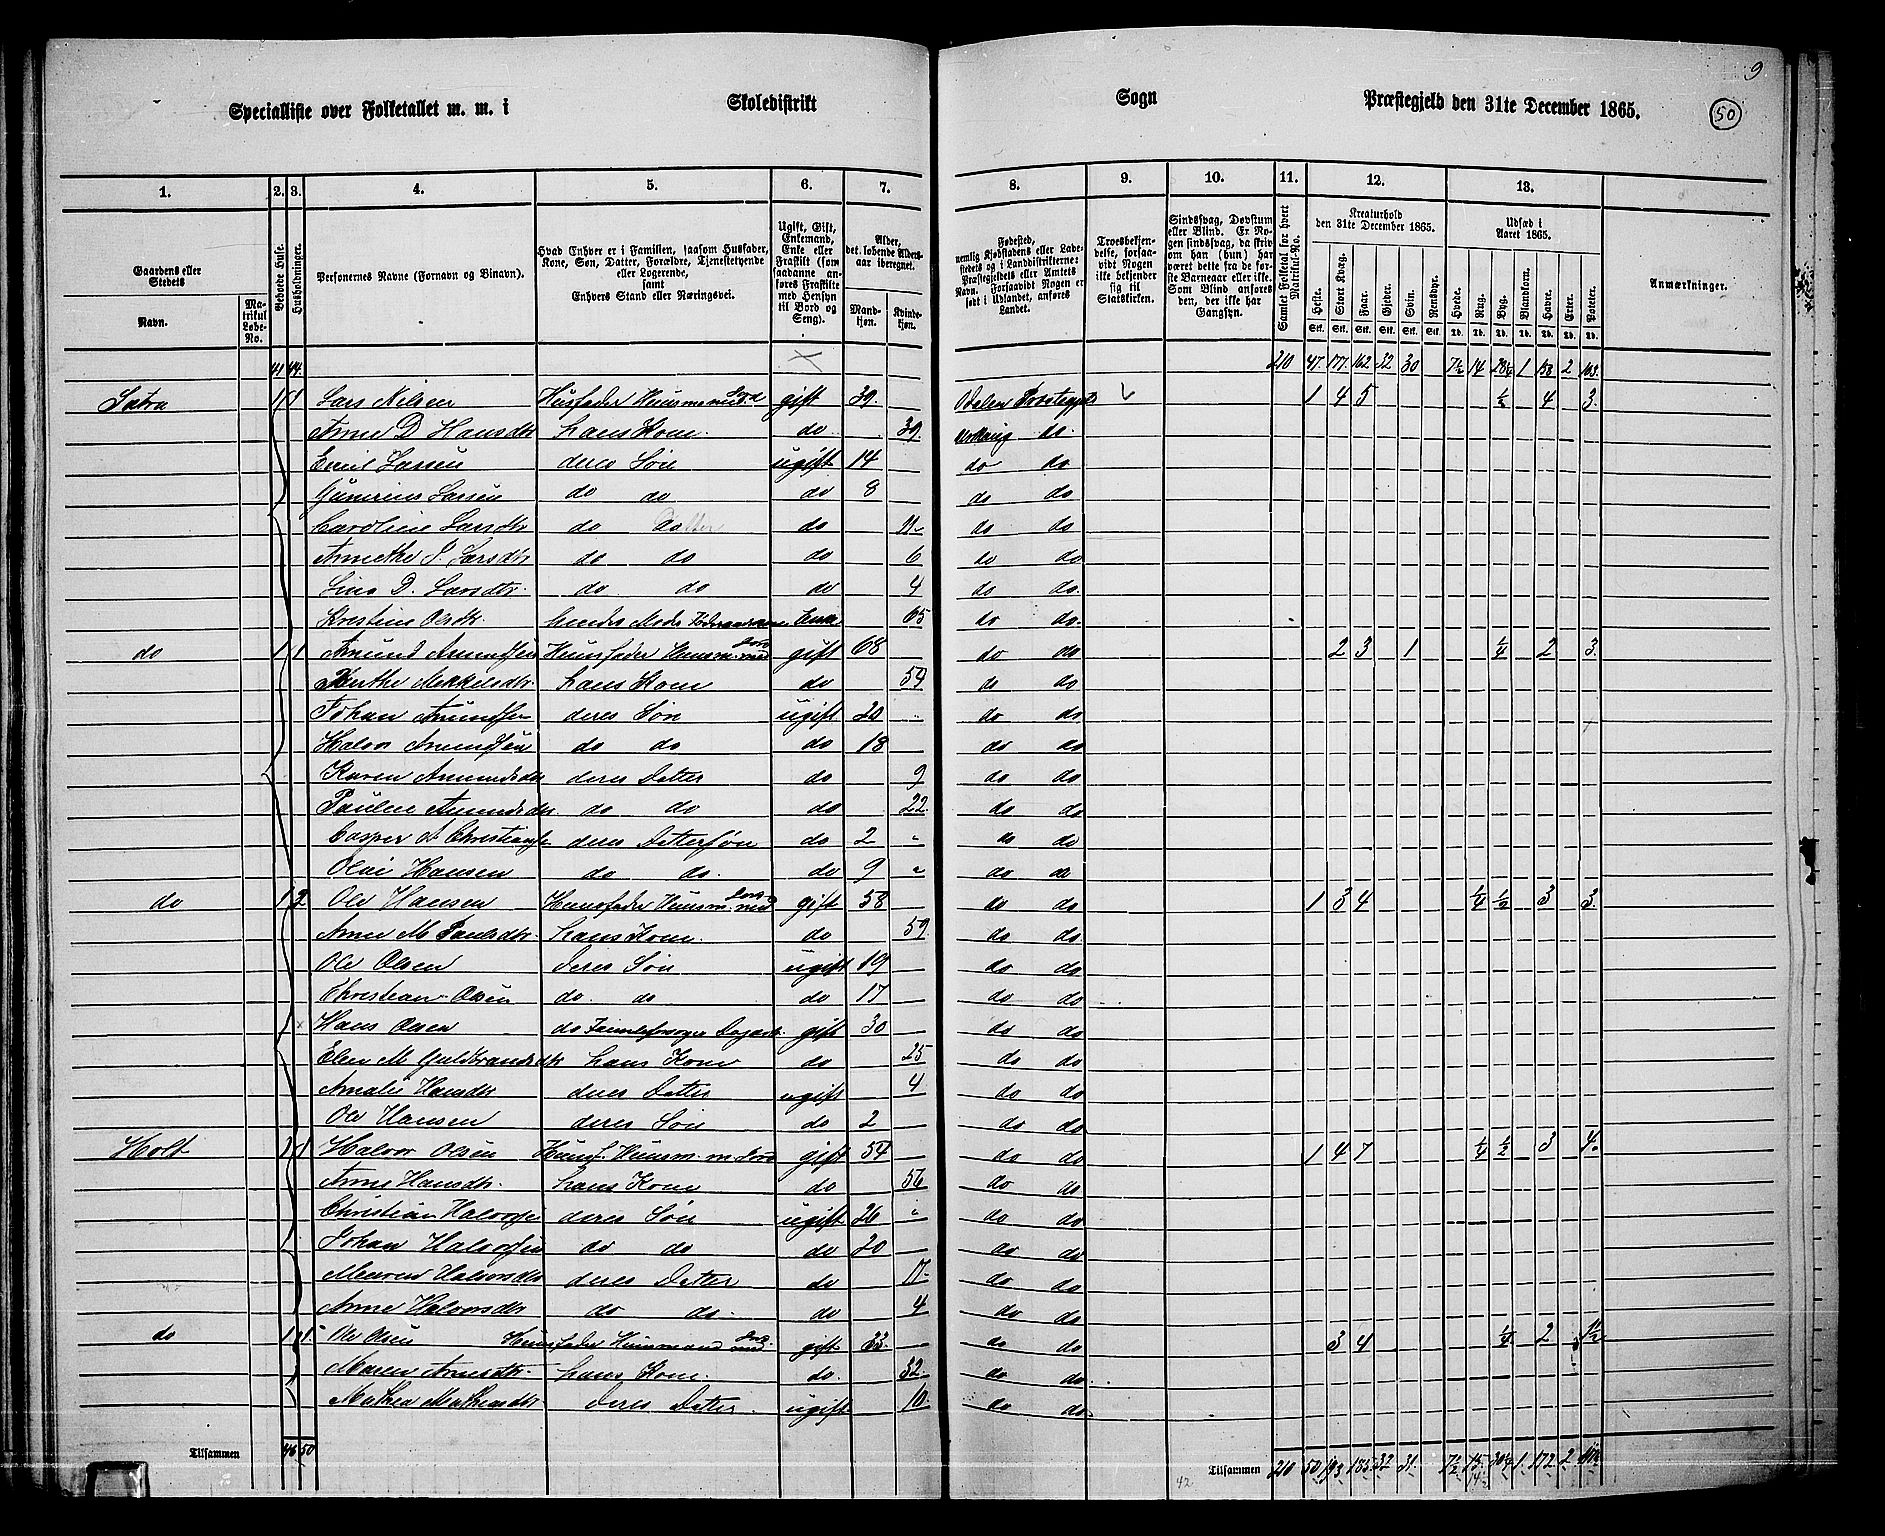 9
50
Specialliste over Folketallet m. m. i Skoledistrikt Sogn Præstegjeld den 31te December 1865.
1. 2. 3. 4. 5. 6. 7. 8. 9. 10. 11. 12. 13.
Gaardens eller Stedets
Navn.
Matrikul Løbe-No.
Beboede Huse.
Husholdninger.
Personernes Navne (Fornavn og Binavn).
Hvad Enhver er i Familien, saasom Husfader, Kone, Søn, Datter, Forældre, Tjenestetyende eller Logerende, samt Enhvers Stand eller Næringsvei.
Ugift, Gift, Enkemand, Enke eller Fraskilt (som saadanne anføres Fraskilte med Hensyn til Bord og Seng).
Alder, det løbende Aldersaar iberegnet.
Mandkjøn. Kvindekjøn.
Fødested, nemlig Kjøbstadens eller Ladestedets og i Landdistrikterne: Præstegjeldets eller Amtets Navn. Forsaavidt Nogen er født i Udlandet, anføres Landet.
Troesbekjendelse, forsaavidt Nogen ikke bekjender sig til Statskirken.
Sindssvag, Døvstum eller Blind. Er Nogen sindssvag, da skriv om han (hun) har været dette fra de første Barneaar eller ikke. Som Blind anføres den, der ikke har Gangsyn.
Samlet Folketal for hvert Matrikul-No.
Kreaturhold den 31te December 1865.
Heste. Stort Kvæg. Faar. Gjeder. Svin. Rensdyr.
Udsæd i Aaret 1865.
Hvede. Rug. Byg. Blandkorn. Havre. Erter. Poteter.
Anmærkninger.
41 44. 210 47. 177. 162 32 30 7½ 14 1 158 2
1 1 Lars Nilsen Husfader Huusm med Jord gift 39. Odalen Præstegj 1 4 5 ½ 4 3
Anne D Hansdtr hans Kone. do 39. do.
Emil Larsen deres Søn ugift 14 do do
Larsen do do do 8 do do
Caroline Larsdtr do Datter do 11 do do
Larsdtr do do do 6 do do
Lina D. Larsdtr. do do do 4 do do.
Kristine Olsdtr. hendes Moder Enke 65 do do.
do 1 1 Amund Amundsen Huusfader Huusm. med Jord gift 68 do do 2 3 1 ¼ 2 3
Mikkelsdtr. hans Kone do 59 do do
Johan Amundsen deres Søn ugift 20 do do
Halvor Amundsen do do do 18 do do
Karen Amundsdtr deres Datter do 9 do do
Paulen Amundsdtr. do do do 22. do do
Casper A Christiansen deres Dattersøn do 2 do do
Hansen do do. do 9 do do
do 1 2 Ole Hansen Huusfader Huusm. med Jord gift 58 do do 1 3 4 ¼ ½ 3 3.
Anne M Paulsdtr. hans Kone. do 59. do do.
Ole Olsen deres Søn ugift 19 do do
Christian Olsen do. do do 17 do do
Hans Olsen do gift 30 do do
Elen M Guldbrandsdtr hans Kone do 25 do do
Amalie Hansdtr deres Datter ugift 4 do do
Ole Hansen deres Søn do 2 do do
Holt 1 1 Halvor Olsen Huusf. Huusm. m Jord gift 54 do do 1 4 7 ¼ ½ 3 4
Anne Hansdtr. hans Kone do 56 do do
Christian Halvorsen deres Søn ugift 26 do do
Johan Halvorsen do do do 20 do do
Halvorsdtr deres Datter do 17 do do
Anne Halvorsdtr do do. do 4 do do
do 1 1 Ole Olsen Huusfader Huusmand med Jord gift 33. do do 3 4 ¼ 2
Maren Arnesdtr. hans Kone. do. 32 do do.
Mathea Mathiasdtr deres Datter. ugift 10. do do.
Tilsammen 46 50 Tilsammen 210 50 193 185 32 31. 7½ 15 1 172 2
42